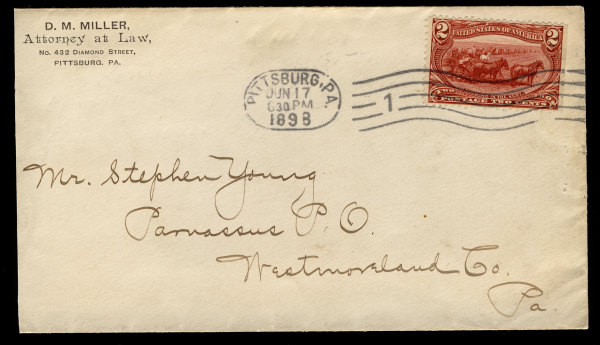 D. M. MILLER,
Attorney at Law,
No. 432 DIAMOND STREET,
PITTSBURG. PA.
PITTSBURG, PA.
JUN 17
630 PM
1898
1
2 2
UNITED STATES OF AMERICA
POSTAGE TWO CENTS
Mr. Stephen Young
Parnassus P.O.
Westmoreland Co.
Pa.